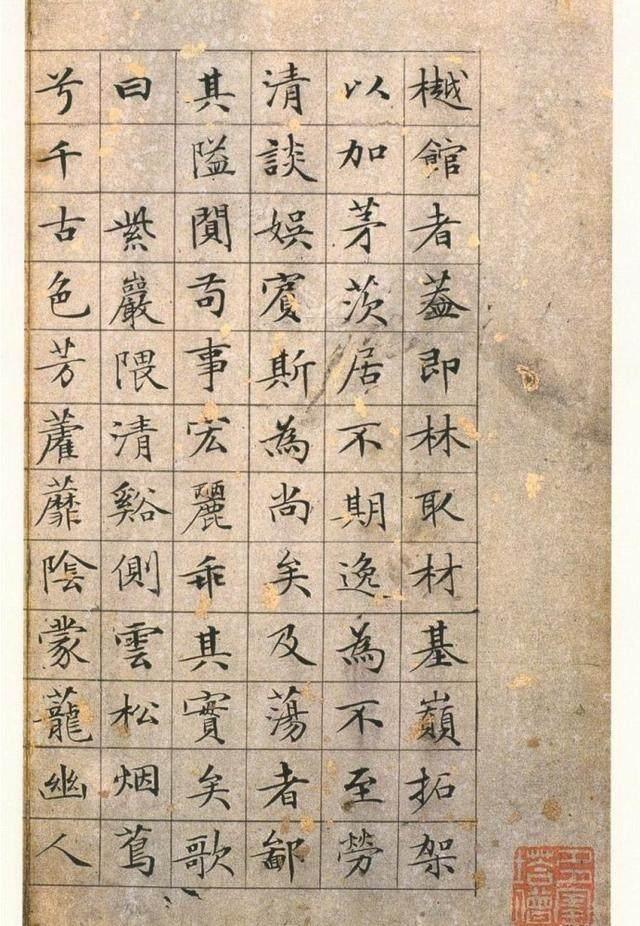 樾館者蓋即林取材基巔拓架
以加茅茨居不期逸為不至勞
清談娛賓斯為尚矣及蕩者鄙
其隘闃苟事宏麗乖其實矣歌
曰 紫巖隈清谿側雲松烟蔦
兮千古色芳藿蘼陰蒙蘢幽人